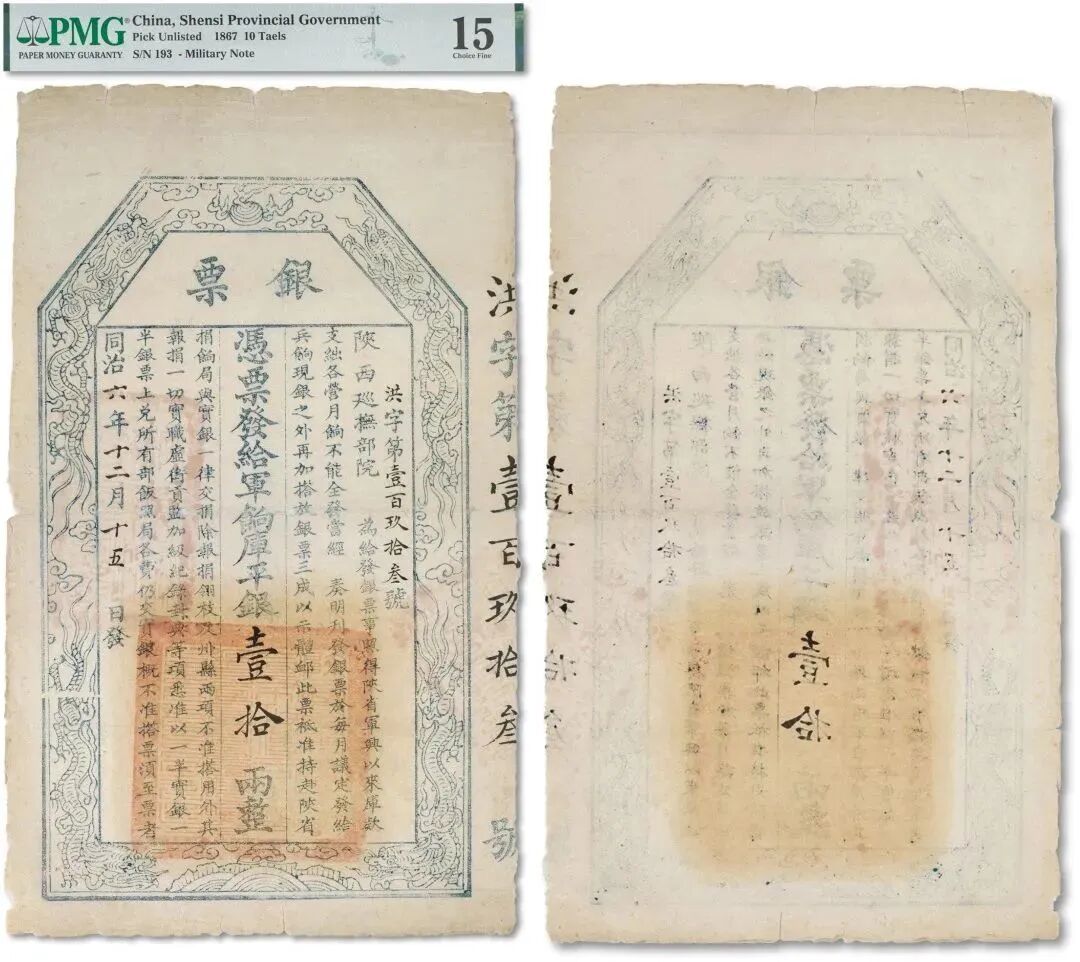 PMG
PAPER MONEY GUARANTY
China, Shensi Provincial Government
Pick Unlisted 1867 10 Taels
S/N 193 - Military Note
15
Choice Fine
銀票
洪字第壹百玖拾叁號
洪字第壹百玖拾叁號
陝西巡撫部院 為給發銀票事照得陝省軍興以來庫欵
支絀各營月餉不能全發當經 奏明刊發銀票於每月議定發給
兵餉現銀之外再加搭放銀票三成以示體邮此票祗准持赴陝省
憑票發給軍餉庫平銀壹拾兩整
捐餉局與實銀一律交捐除報捐翎枝及州縣兩項不准搭用外其
報捐一切實職虛銜貢監加級紀錄封典等項悉准以一半實銀一
半銀票上兌所有部飯照局各費仍交實銀概不准搭票須至票者
同治六年十二月十五日發